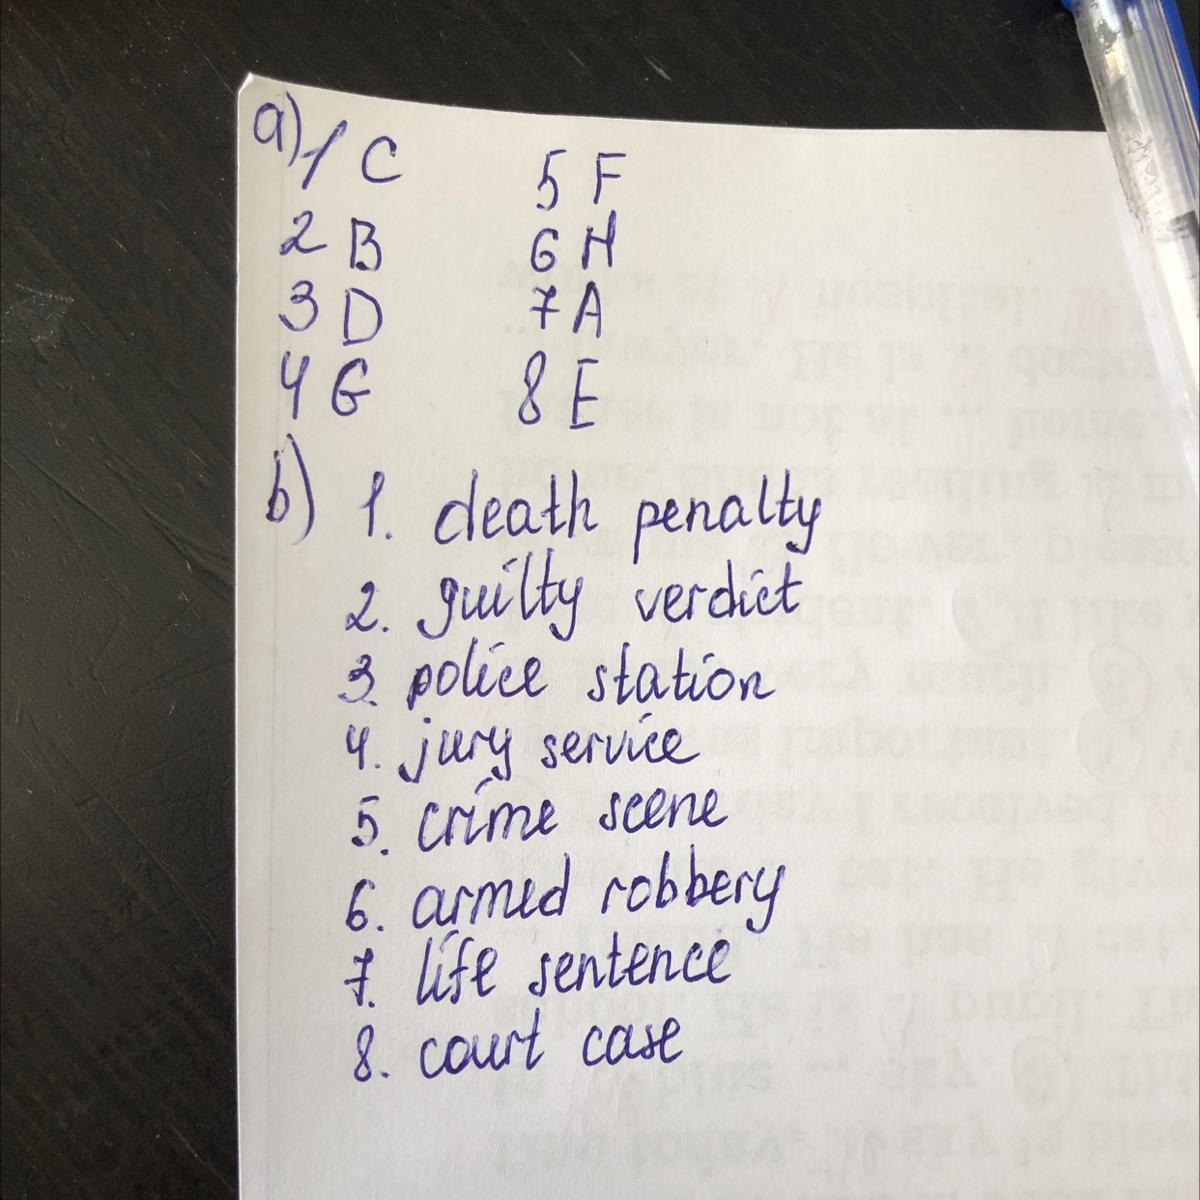 a) 1 C 5 F
2 B 6 H
3 D 7 A
4 G 8 E
b) 1. death penalty
2. guilty verdict
3. police station
4. jury service
5. crime scene
6. armed robbery
7. life sentence
8. court case